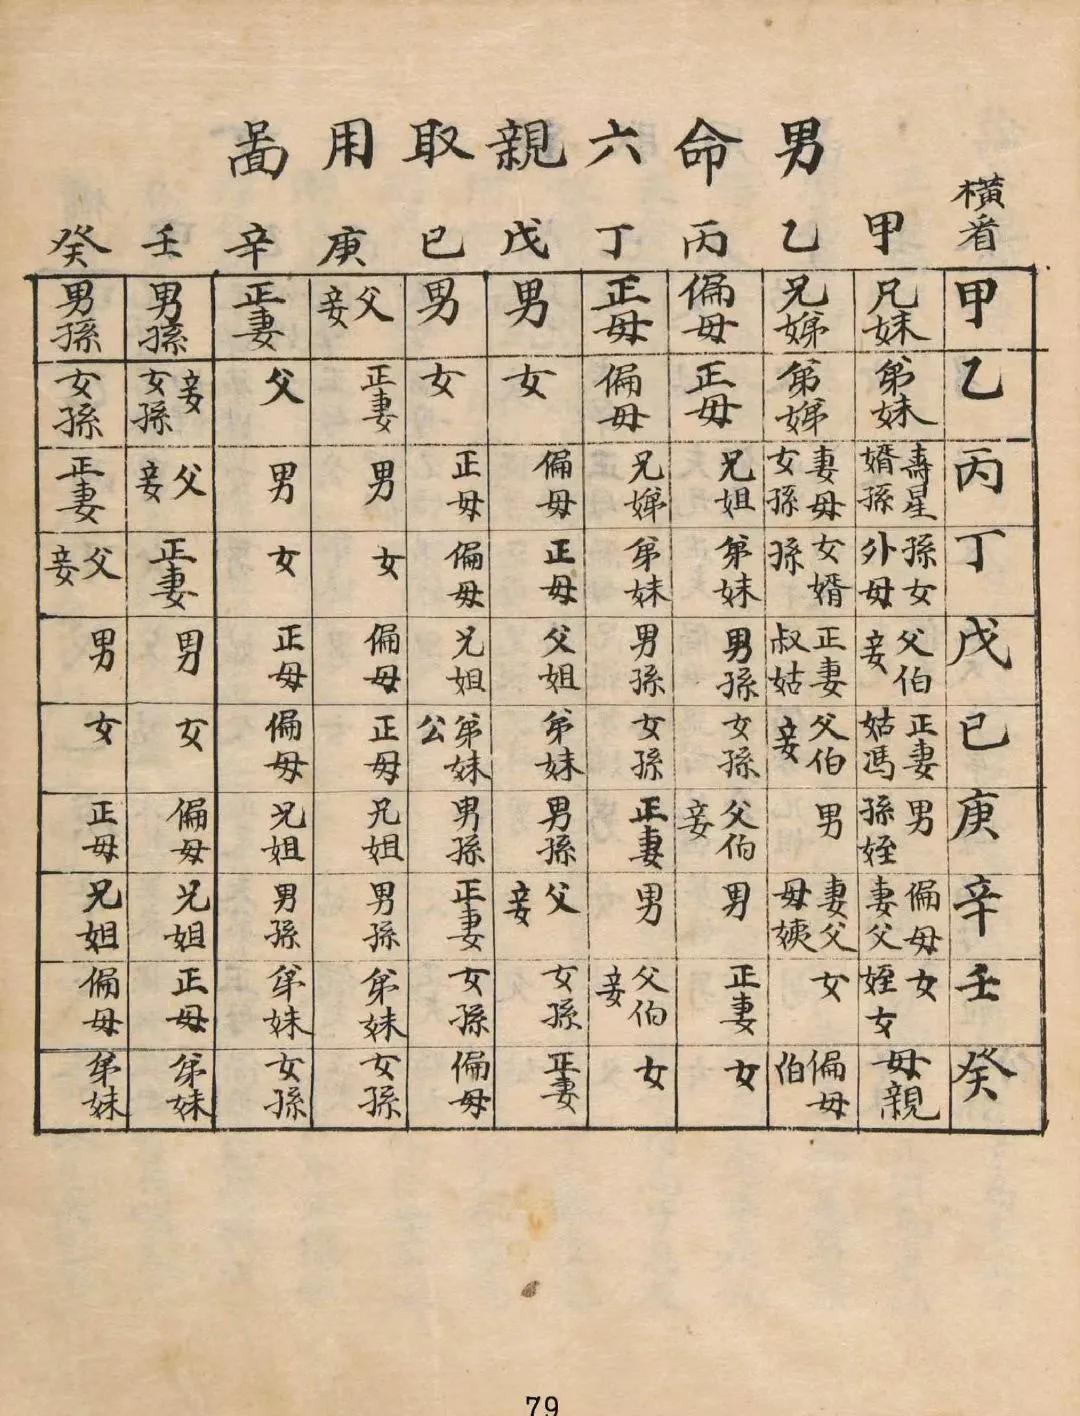 男命六親取用啚
橫看 甲 乙 丙 丁 戊 已 庚 辛 壬 癸
甲 兄妹 兄娣 偏母 正母 男 男 父妾 正妻 男孫 男孫
乙 弟妹 弟娣 正母 偏母 女 女 正妻 父 妾女孫 女孫
丙 壽星婿孫 妻母女孫 兄姐 兄娣 偏母 正母 男 男 父妾 正妻
丁 孫女外母 女婿孫 弟妹 弟妹 正母 偏母 女 女 正妻 父妾
戊 父伯妾 正妻叔姑 男孫 男孫 父姐 兄姐 偏母 正母 男 男
已 正妻姑馮 父伯妾 女孫 女孫 弟妹 弟妹公 正母 偏母 女 女
庚 男孫姪 男 父伯妾 正妻 男孫 男孫 兄姐 兄姐 偏母 正母
辛 偏母妻父 妻父母姨 男 男 父妾 正妻 男孫 男孫 兄姐 兄姐
壬 女姪女 女 正妻 父伯妾 女孫 女孫 弟妹 弟妹 正母 偏母
癸 母親 偏母伯 女 女 正妻 偏母 女孫 女孫 弟妹 弟妹
79